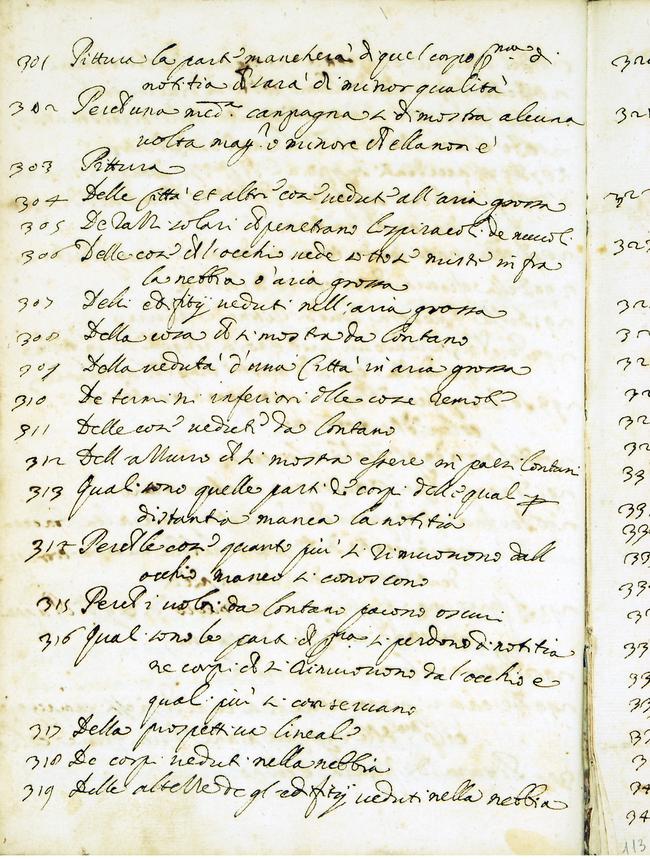 301 Pittura la parte mancherà di quel corpo p.ma di
notitia ch sarà di minor qualità
302 Perch una med.a campagna si dimostra alcuna
volta mag.r o minore ch ella non è
303 Pittura
304 Delle Città et altre cose vedute all'aria grossa
305 De razzi solari ch penetrano li spiracoli de nuvoli
306 Delle cose ch l'occhi vede sotto se miste infra
la nebbia o aria grossa
307 Delli edifitij veduti nell'aria grossa
308 Della cosa ch si mostra da lontano
309 Della veduta d'una Città in aria grossa
310 De termini inferiori delle cose remote
311 Delle cose vedute da lontano
312 Dell azzurro ch si mostra essere in paesi lontani
313 Quali sono quelle parti de corpi delle quali p
distantia manca la notitia
314 Perch le cose quanto più si rimuovono dall
occhio manco si conoscono
315 Perch i volti da lontano paiono oscuri
316 Quali sono le parti ch p.ma si perdono di notitia
ne corpi ch si rimuovono da l'occhio e
quali più si conservano
317 Della prospettiva lineale
318 De corpi veduti nella nebbia
319 Delle altezze de gl'edifitij veduti nella nebbia
32
113